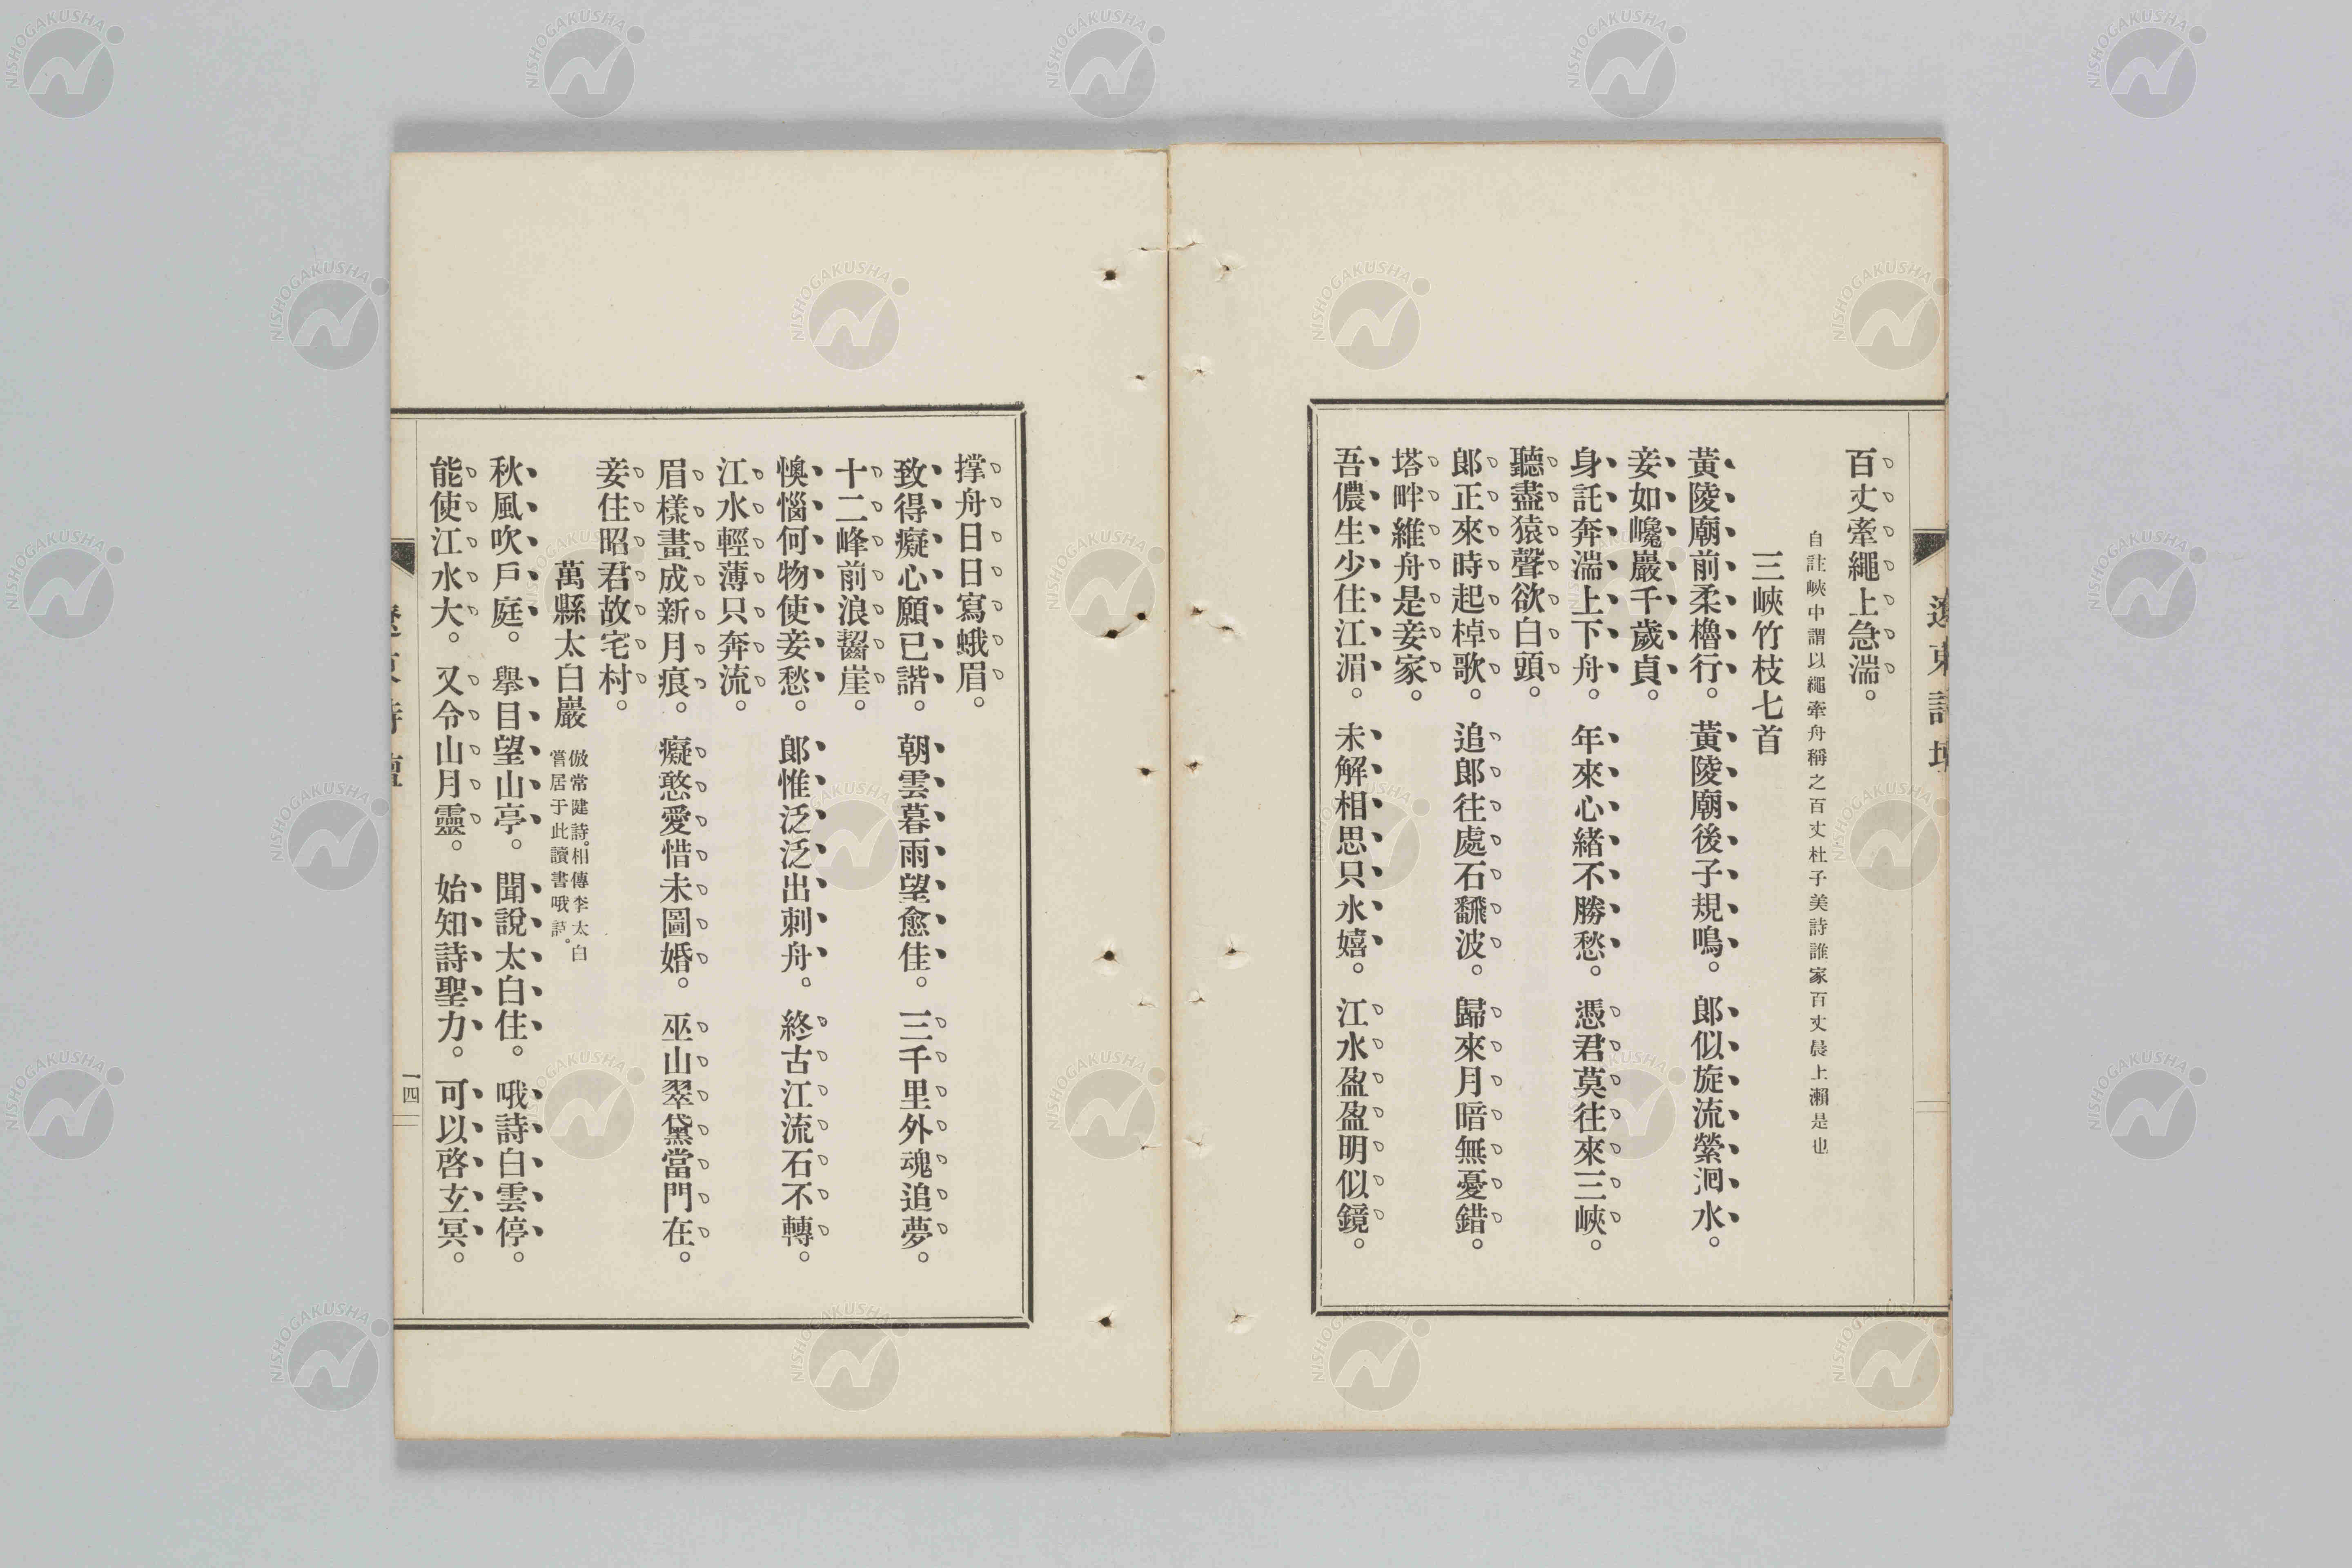 百丈牽繩上急湍。
自註峽中謂以繩牽舟稱之百丈杜子美詩誰家百丈晨上瀨是也
三峽竹枝七首
黃陵廟前柔櫓行。黃陵廟後子規鳴。郎似旋流縈洄水。
妾如巉巖千歲貞。
身託奔湍上下舟。年來心緒不勝愁。憑君莫往來三峽。
聽盡猿聲欲白頭。
郎正來時起棹歌。追郎往處石飜波。歸來月暗無憂錯。
塔畔維舟是妾家。
吾儂生少住江湄。未解相思只水嬉。江水盈盈明似鏡。
撑舟日日寫蛾眉。
致得癡心願已諧。朝雲暮雨望愈佳。三千里外魂追夢。
十二峰前浪齧崖。
懊惱何物使妾愁。郎惟泛泛出刺舟。終古江流石不轉。
江水輕薄只奔流。
眉樣畫成新月痕。癡憨愛惜未圖婚。巫山翠黛當門在。
妾住昭君故宅村。
萬縣太白巖
倣常建詩。相傳李太白
嘗居于此讀書哦詩。
秋風吹戶庭。舉目望山亭。聞說太白住。哦詩白雲停。
能使江水大。又令山月靈。始知詩聖力。可以啓玄冥。
一四
NISHOGAKUSHA